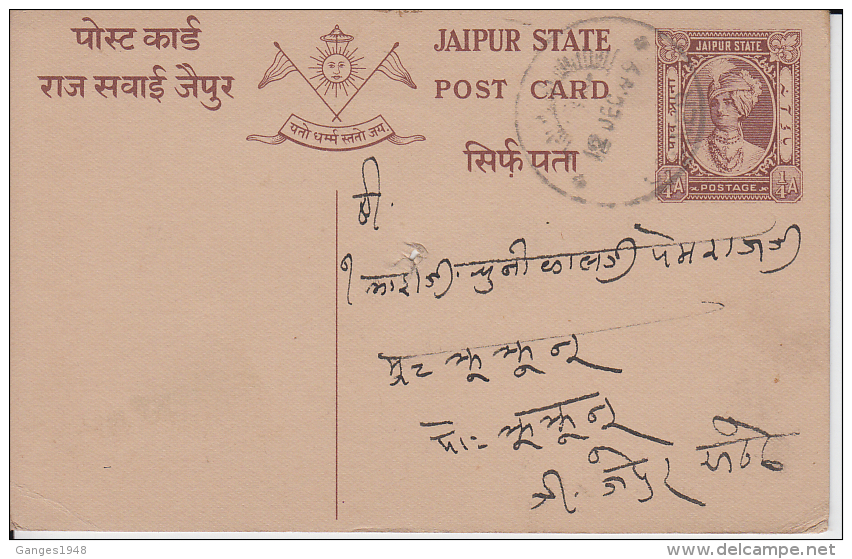 पोस्ट कार्ड
राज सवाई जैपुर
यतो धर्म्म स्ततो जय.
JAIPUR STATE
POST CARD
सिर्फ़ पता
JAIPUR STATE
पाव आना
POSTAGE
¼A ¼A
श्री.
भाईजी चुनीलालजी पेमराजजी
झूझूनू
पो:- झूझूनू
जेपुर
Ganges1948
delcampe.net